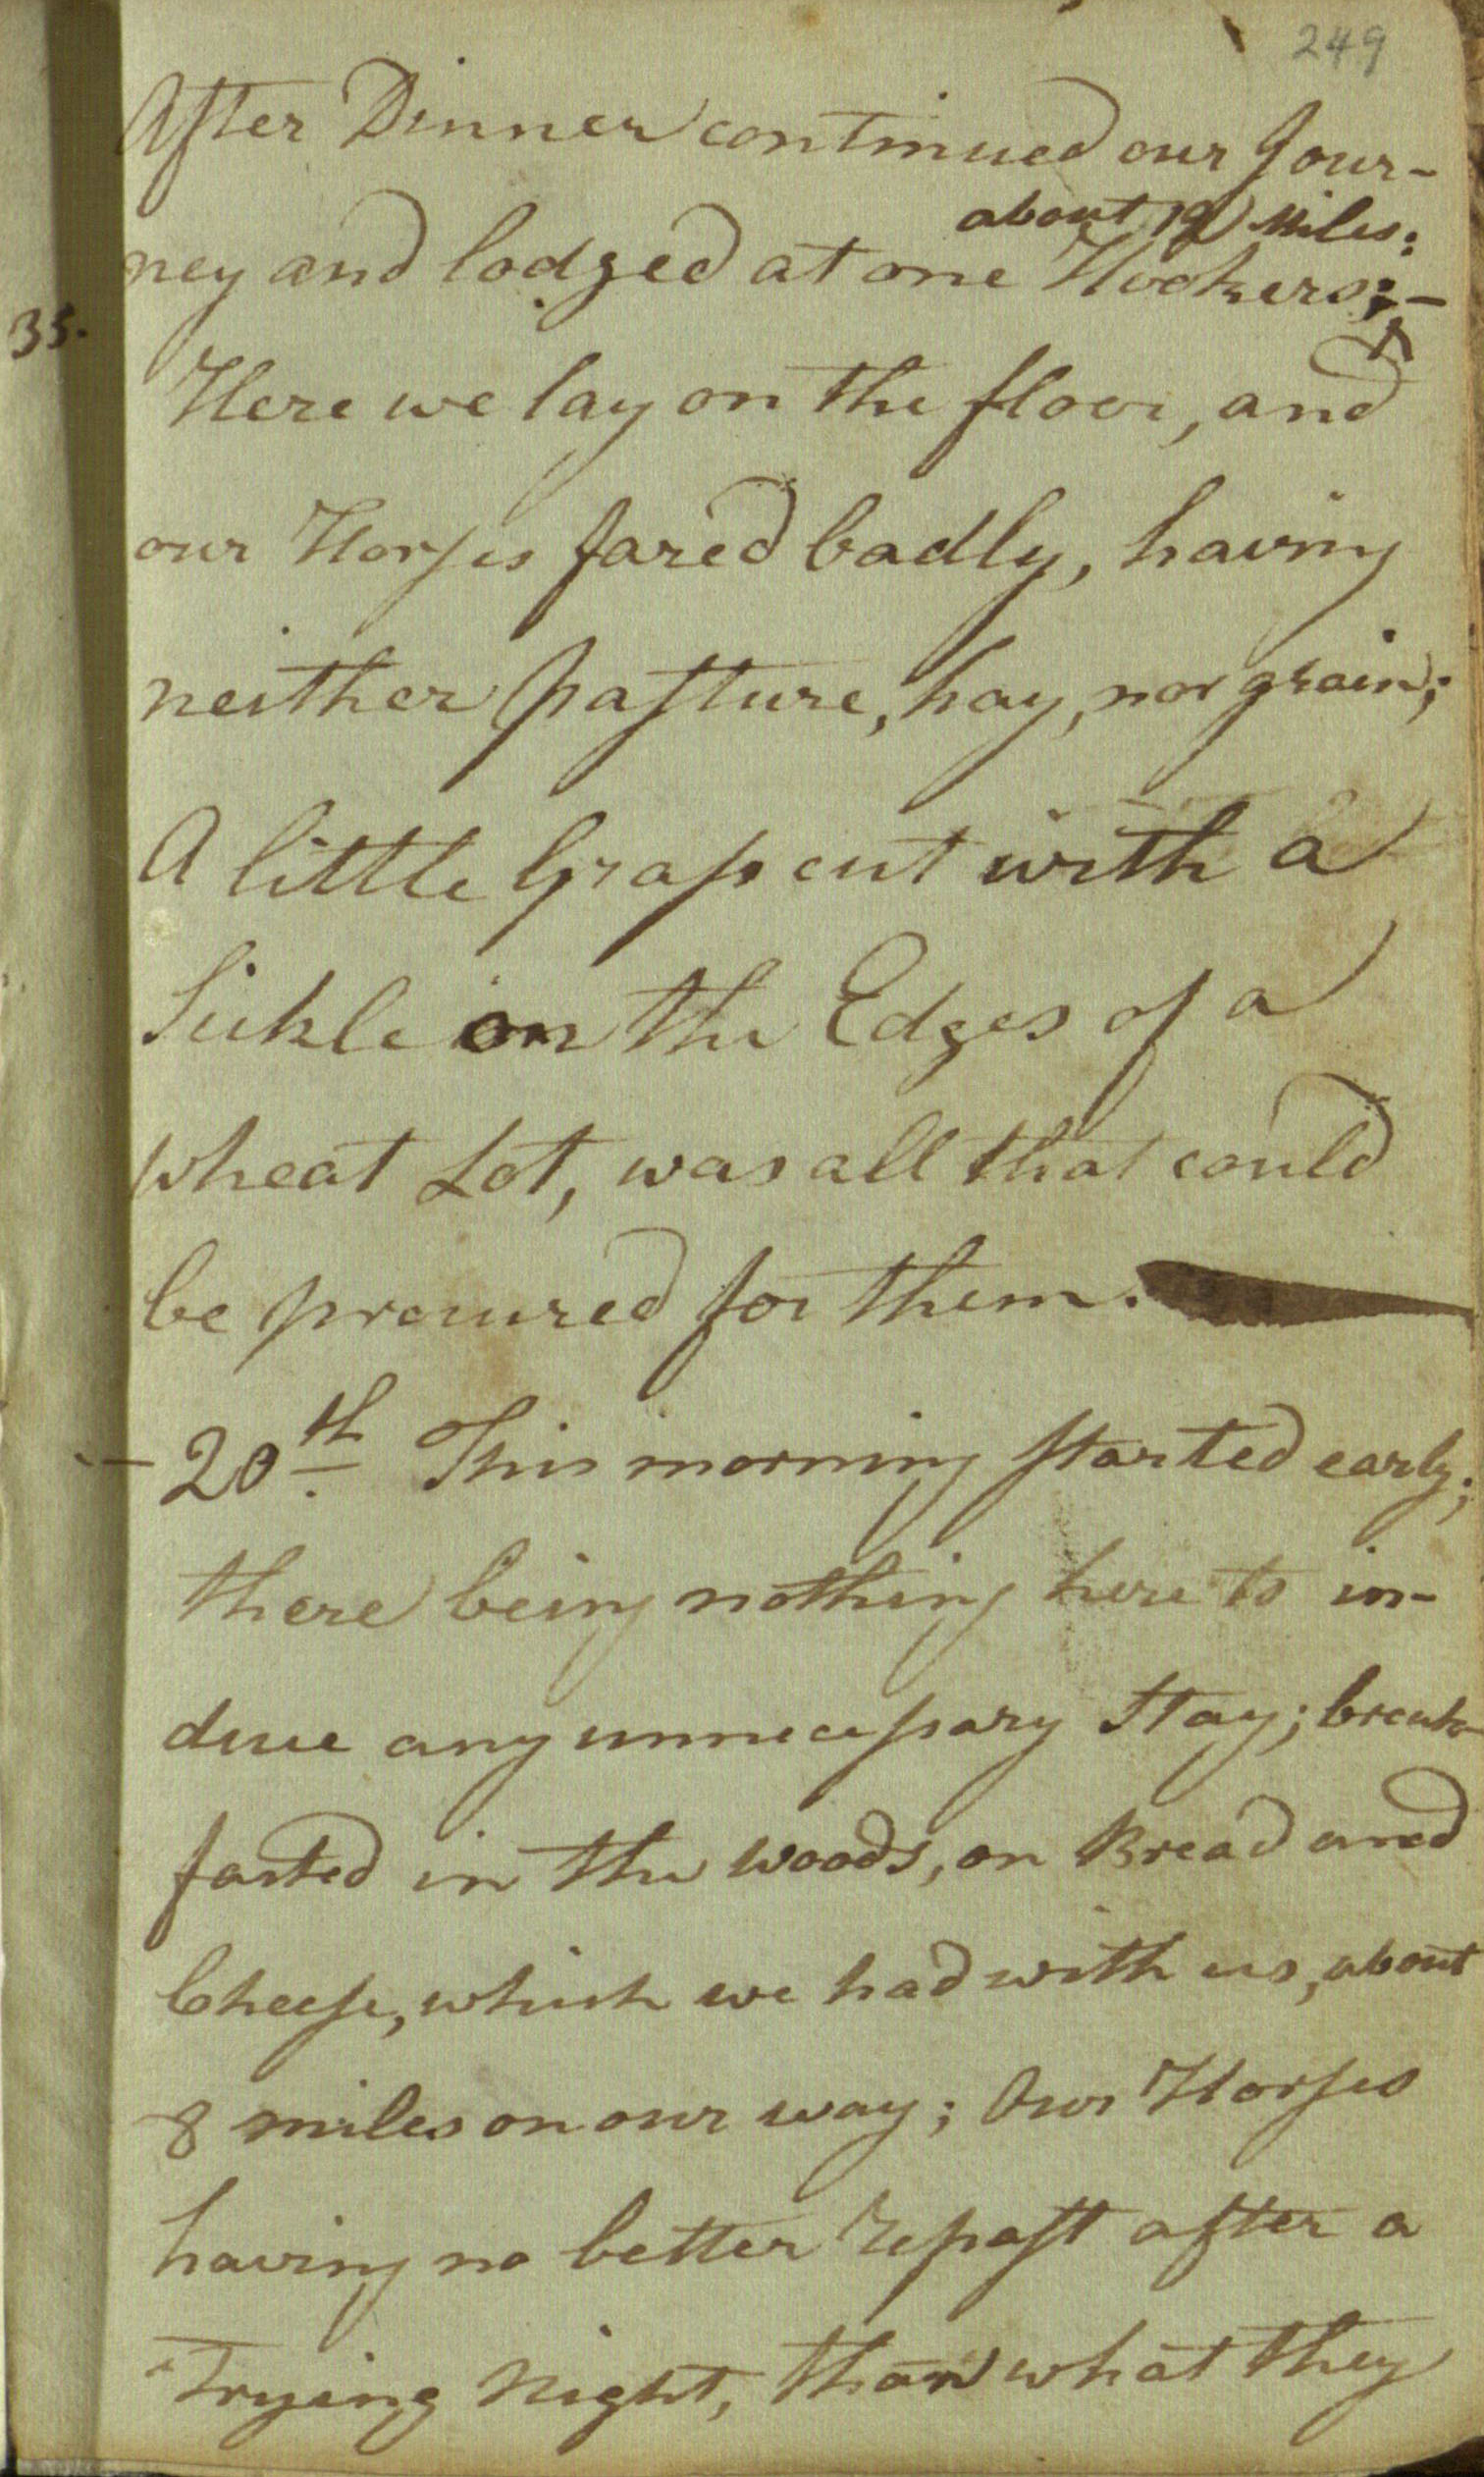 249
After Dinner continued our Jour-
about 19 Miles:
ney and lodged at one Hookers; -
35.
Here we lay on the floor, and
our Horses fared badly, having
neither pasture, hay, nor grain;
A little Grass cut with a
Sickle on the Edges of a
wheat Lot, was all that could
be procured for them.
- 20th This morning started early;
there being nothing here to in-
duce any unnecessary Stay; break-
fasted in the woods, on Bread and
Cheese, which we had with us, about
8 miles on our way; Our Horses
having no better repast after a
Trying Night, than what they